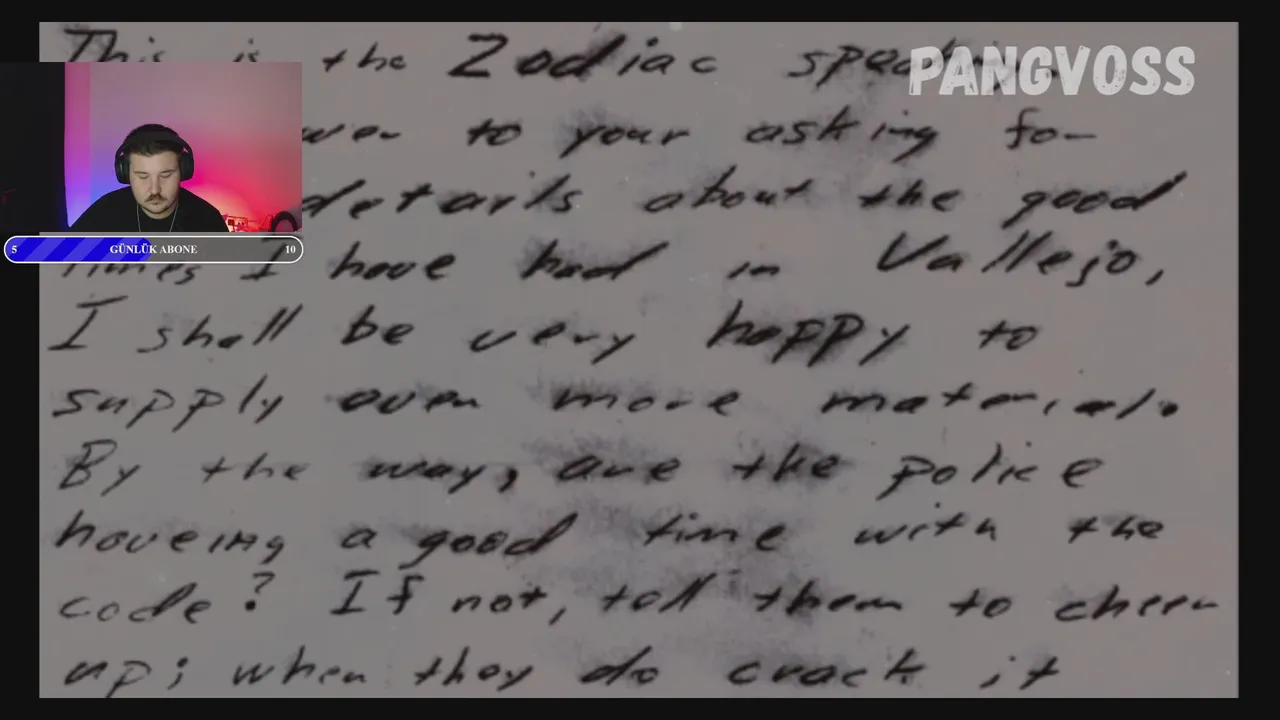 This is the Zodiac speaking.
PANGVOSS
to your asking for
details about the good
5 GÜNLÜK ABONE 10
times I have had in Vallejo,
I shall be very happy to
supply even more material.
By the way, are the police
haveing a good time with the
code? If not, tell them to cheer
up; when they do crack it